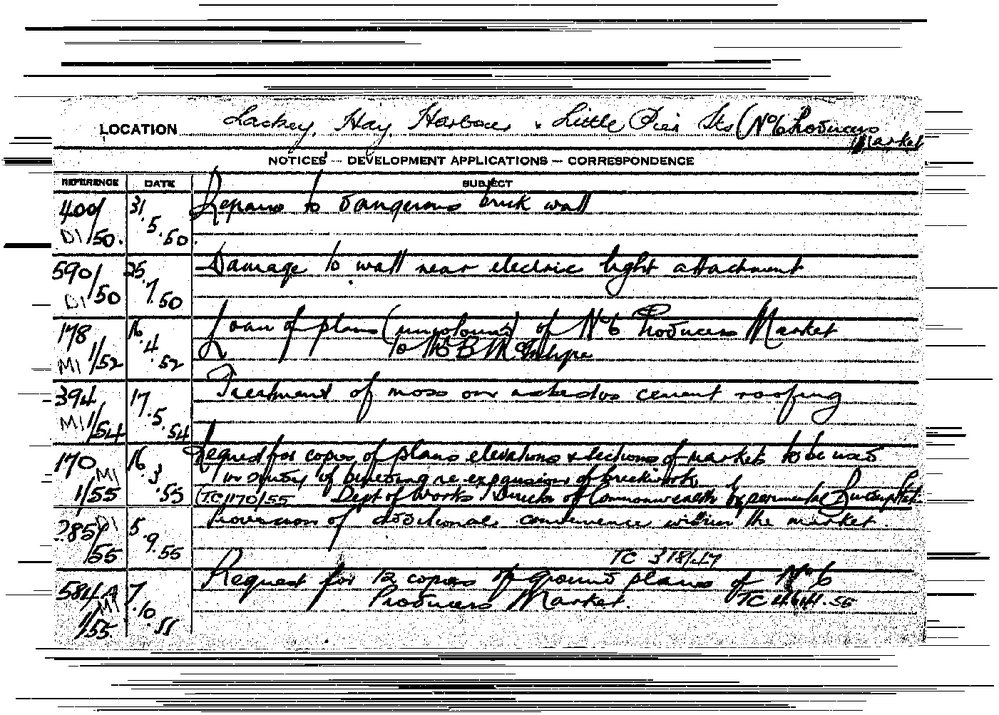 LOCATION Lackey, Hay, Harbour & Little Pier Sts (No 6 Producers
Market
NOTICES — DEVELOPMENT APPLICATIONS — CORRESPONDENCE
REFERENCE DATE SUBJECT
400/ 31. Repairs to dangerous brick wall
D1/50. 5.50.
590/ 25. Damage to wall near electric light attachment
D1/50 7.50
178 16. Loan of plans (uncoloured) of No 6 Producers Market
M1 1/52 4.52 to Mr B. McIntyre
394 17. Treatment of moss on asbestos cement roofing
M1 1/54 5.54
170 M1 16. Request for copies of plans elevations & sections of market to be used
1/55 3.55 in study of re expansion of brickwork
(TC 1170/55 Dept of Works, Director of Commonwealth Experimental Station
285 D1 5. Provision of additional convenience within the market
/55 9.55 TC 318/47
584A 7. Request for 12 copies of ground plans of No 6
M1 1/55 10.55 Producers Market. TC 4641.55